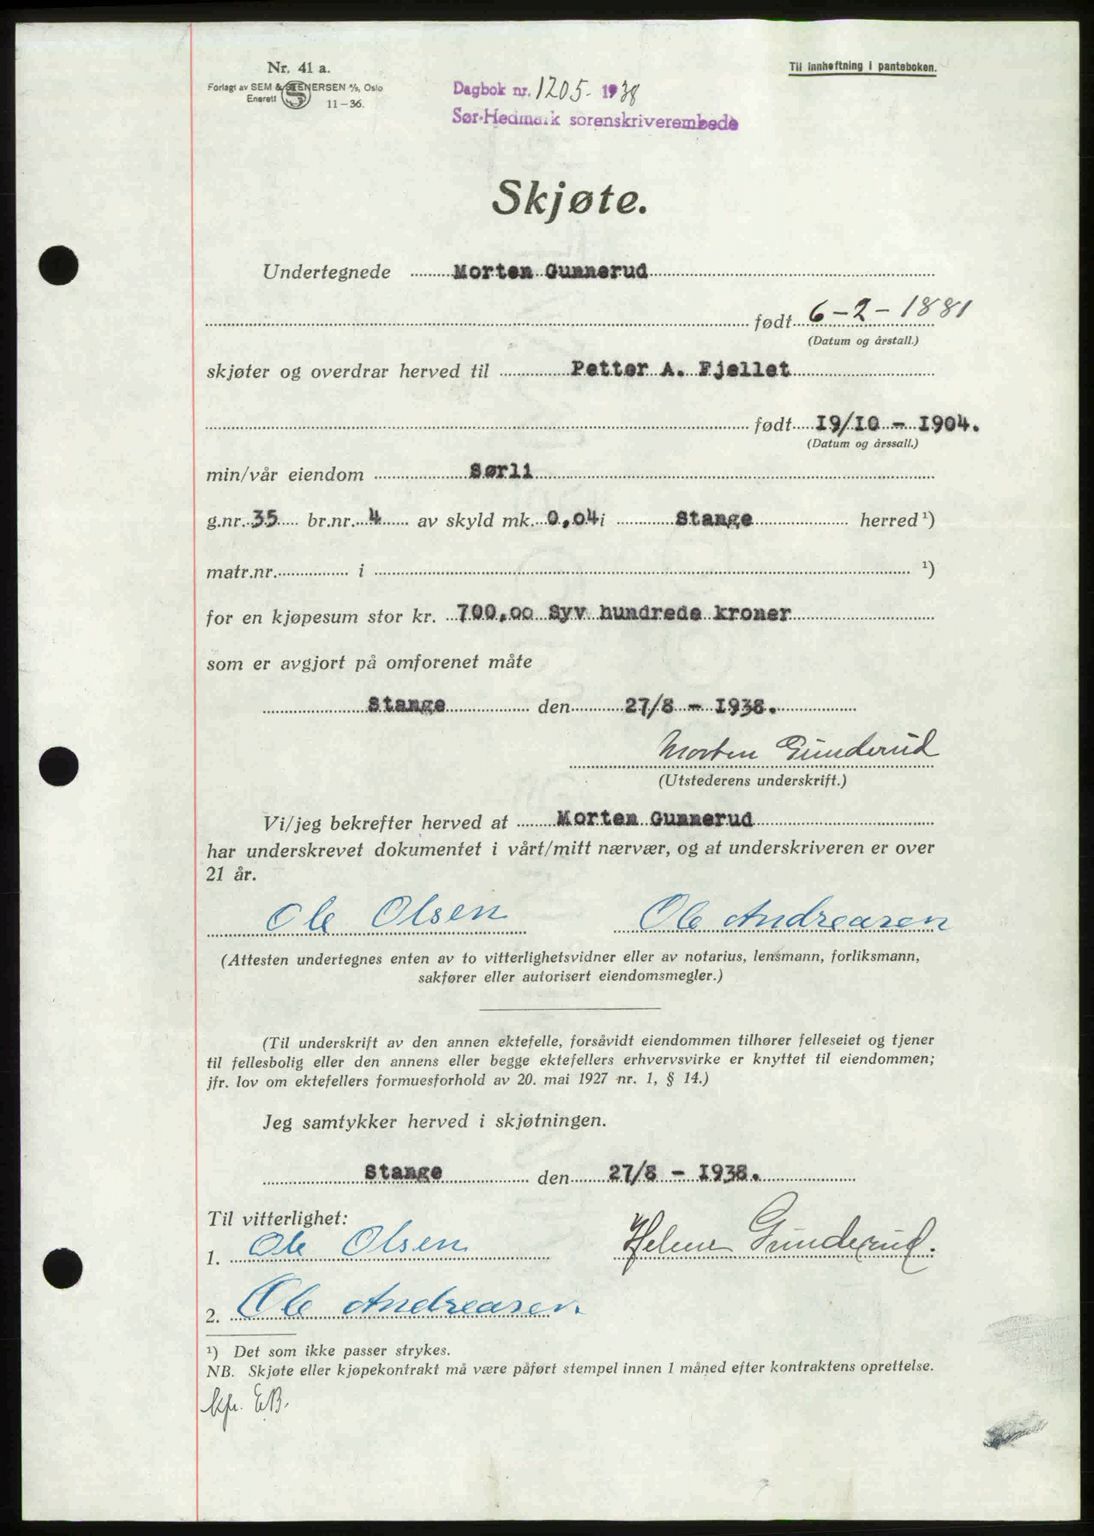 Nr. 41 a.
Forlagt av SEM & STENERSEN A/S, Oslo
Enerett 11-36.
Til innheftning i panteboken.
Dagbok nr. 1205 - 1938
Sør-Hedmark sorenskriverembede
Skjøte.
Undertegnede Morten Gunnerud
født 6-2-1881
(Datum og årstall.)
skjøter og overdrar herved til Petter A. Fjellet
født 19/10 - 1904.
(Datum og årssall.)
min/vår eiendom Sørli
g.nr. 35 br.nr. 4 av skyld mk. 0,04 i Stange herred ¹)
matr.nr. i ¹)
for en kjøpesum stor kr. 700,00 Syv hundrede kroner
som er avgjort på omforenet måte
Stange den 27/8 - 1938.
Morten Gunderud
(Utstederens underskrift.)
Vi/jeg bekrefter herved at Morten Gunnerud
har underskrevet dokumentet i vårt/mitt nærvær, og at underskriveren er over
21 år.
Ole Olsen Ole Andreasen
(Attesten undertegnes enten av to vitterlighetsvidner eller av notarius, lensmann, forliksmann,
sakfører eller autorisert eiendomsmegler.)
(Til underskrift av den annen ektefelle, forsåvidt eiendommen tilhører felleseiet og tjener
til fellesbolig eller den annens eller begge ektefellers erhvervsvirke er knyttet til eiendommen;
jfr. lov om ektefellers formuesforhold av 20. mai 1927 nr. 1, § 14.)
Jeg samtykker herved i skjøtningen.
Stange den 27/8 - 1938.
Til vitterlighet:
1. Ole Olsen Helene Gunderud.
2. Ole Andreasen.
¹) Det som ikke passer strykes.
NB. Skjøte eller kjøpekontrakt må være påført stempel innen 1 måned efter kontraktens oprettelse.
kpr. E.B.